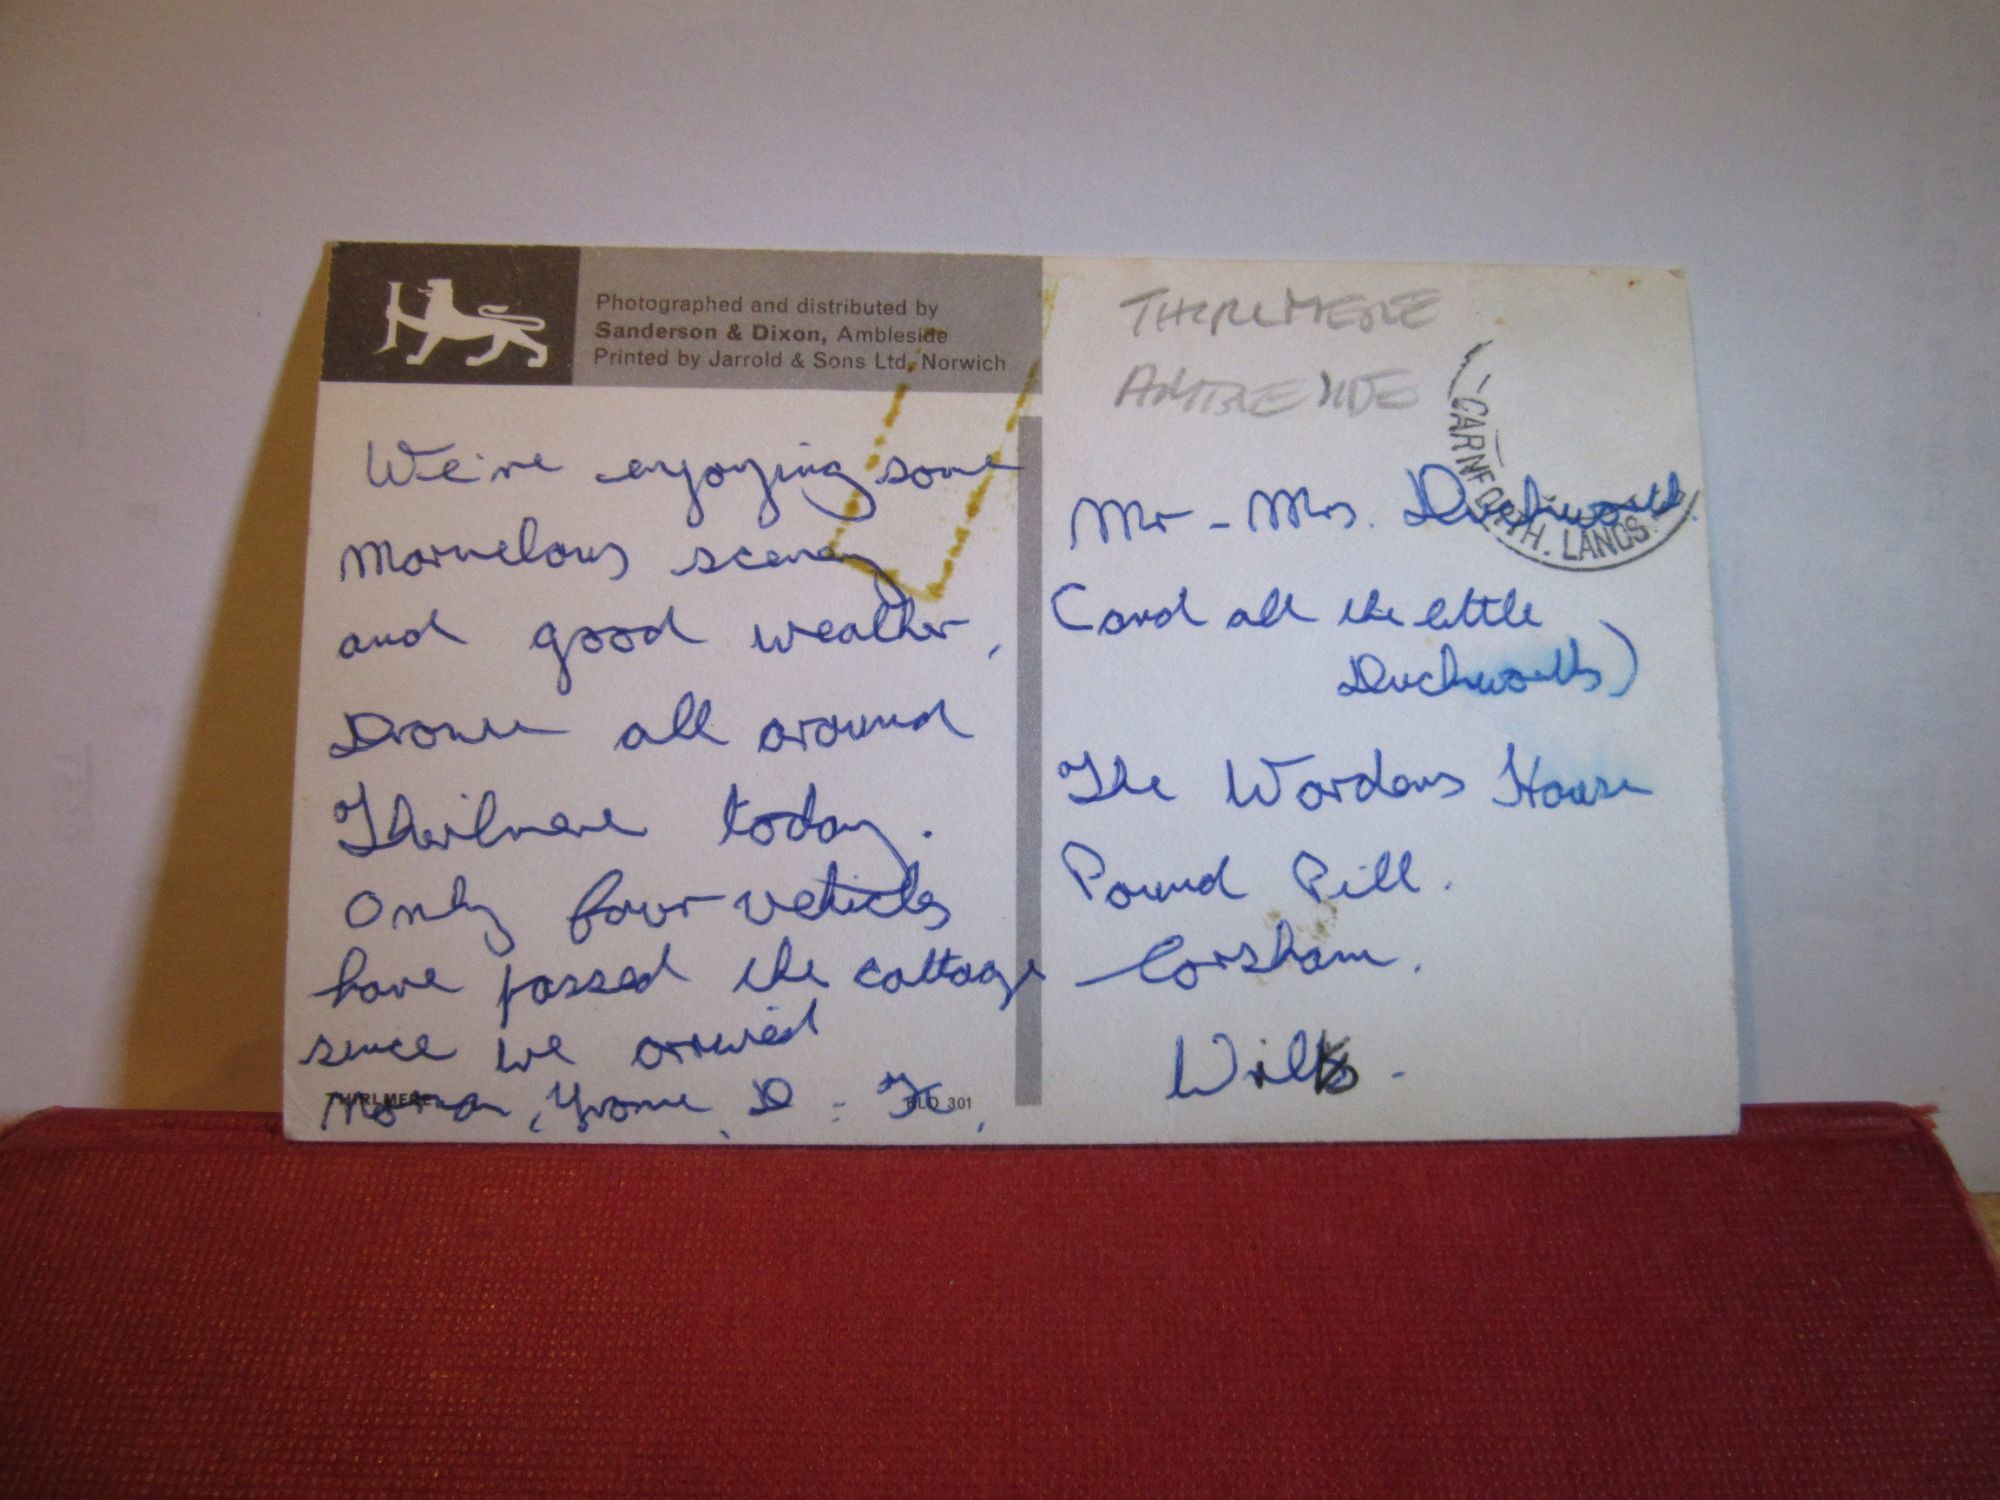 Photographed and distributed by
Sanderson & Dixon, Ambleside
Printed by Jarrold & Sons Ltd, Norwich
We're enjoying some
marvelous scenery
and good weather,
Drove all around
Thirlmere today.
Only four vehicles
have passed the cottage
since we arrived
Norman, Yvonne, D -
THIRLMERE
301
THIRLMERE
AMBLESIDE
CARNFORTH. LANCS.
Mr - Mrs. Duckworth.
(and all the little
Duckworths)
The Wardens House
Pound Pill.
Corsham.
Wilts.